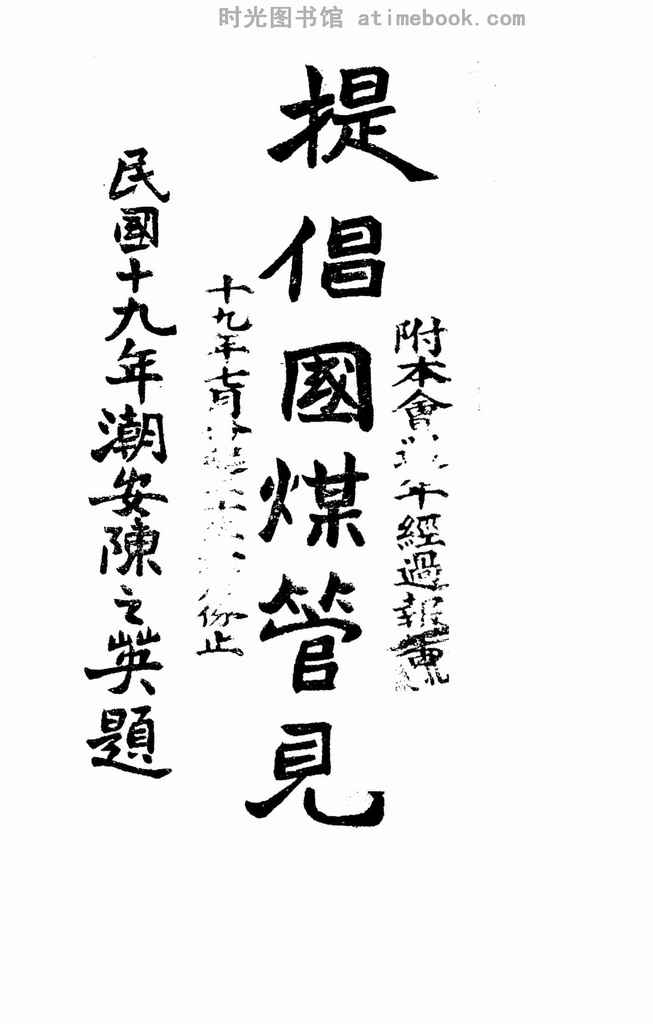 时光图书馆 atimebook.com
附本會年經過報
提倡國煤管見
十九年七月止
民國十九年潮安陳之英題